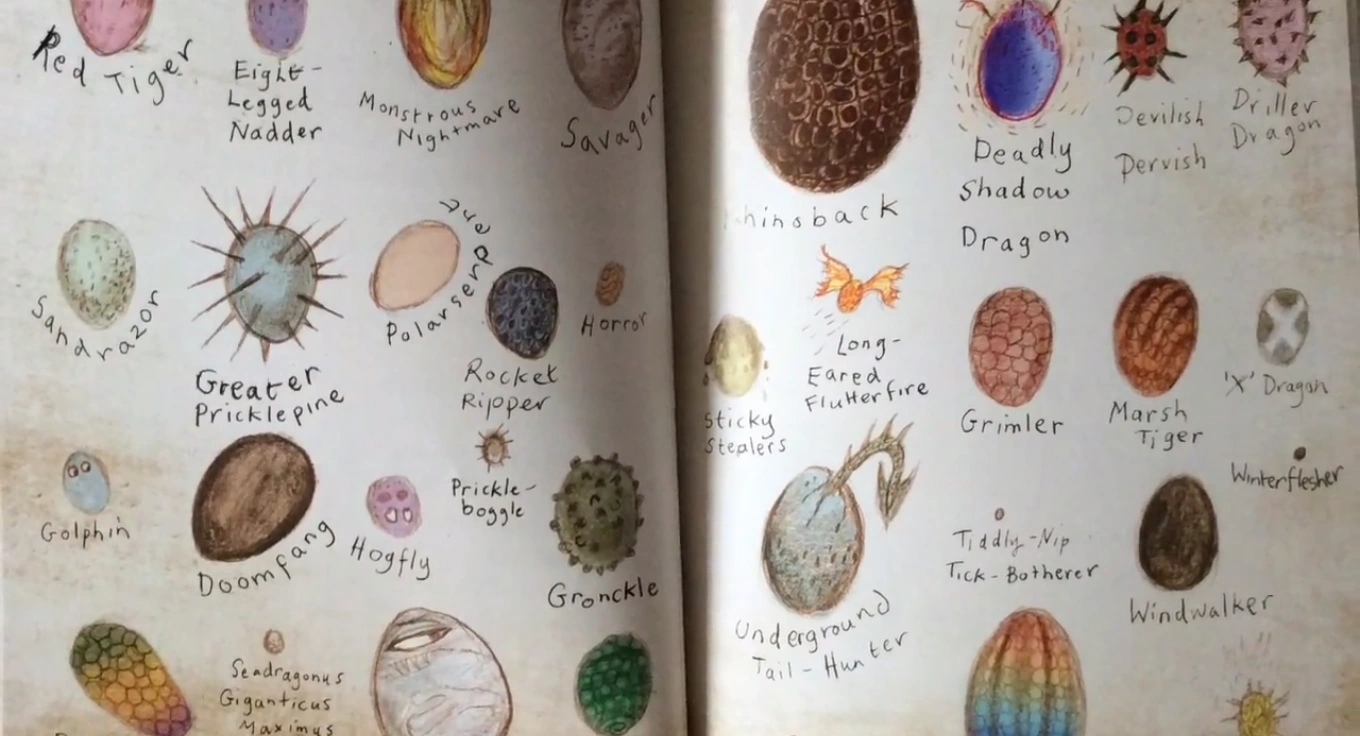 Red Tiger
Eight-
Legged
Nadder
Monstrous
Nightmare
Savager
Sandrazor
Greater
Pricklepine
Polarserpare
Rocket
Ripper
Horror
Golphin
Doomfang
Hogfly
Prickle-
boggle
Gronckle
Seadragonus
Giganticus
Maximus
hinoback
Deadly
Shadow
Dragon
Devilish
Dervish
Driller
Dragon
Sticky
Stealers
Long-
Eared
Flutterfire
Grimler
Marsh
Tiger
'X' Dragon
Underground
Tail-Hunter
Tiddly-Nip
Tick-Botherer
Winterflesher
Windwalker